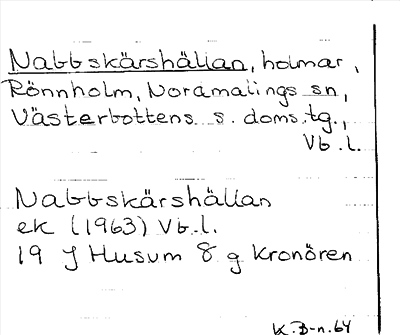 Nabbskärshällan, holmar,
Rönnholm, Nordmalings sn,
Västerbottens s. doms.tg.,
Vb.l.
Nabbskärshällan
ek (1963) Vb.l.
19 J Husum 8 g Kronören
K.B-n.64